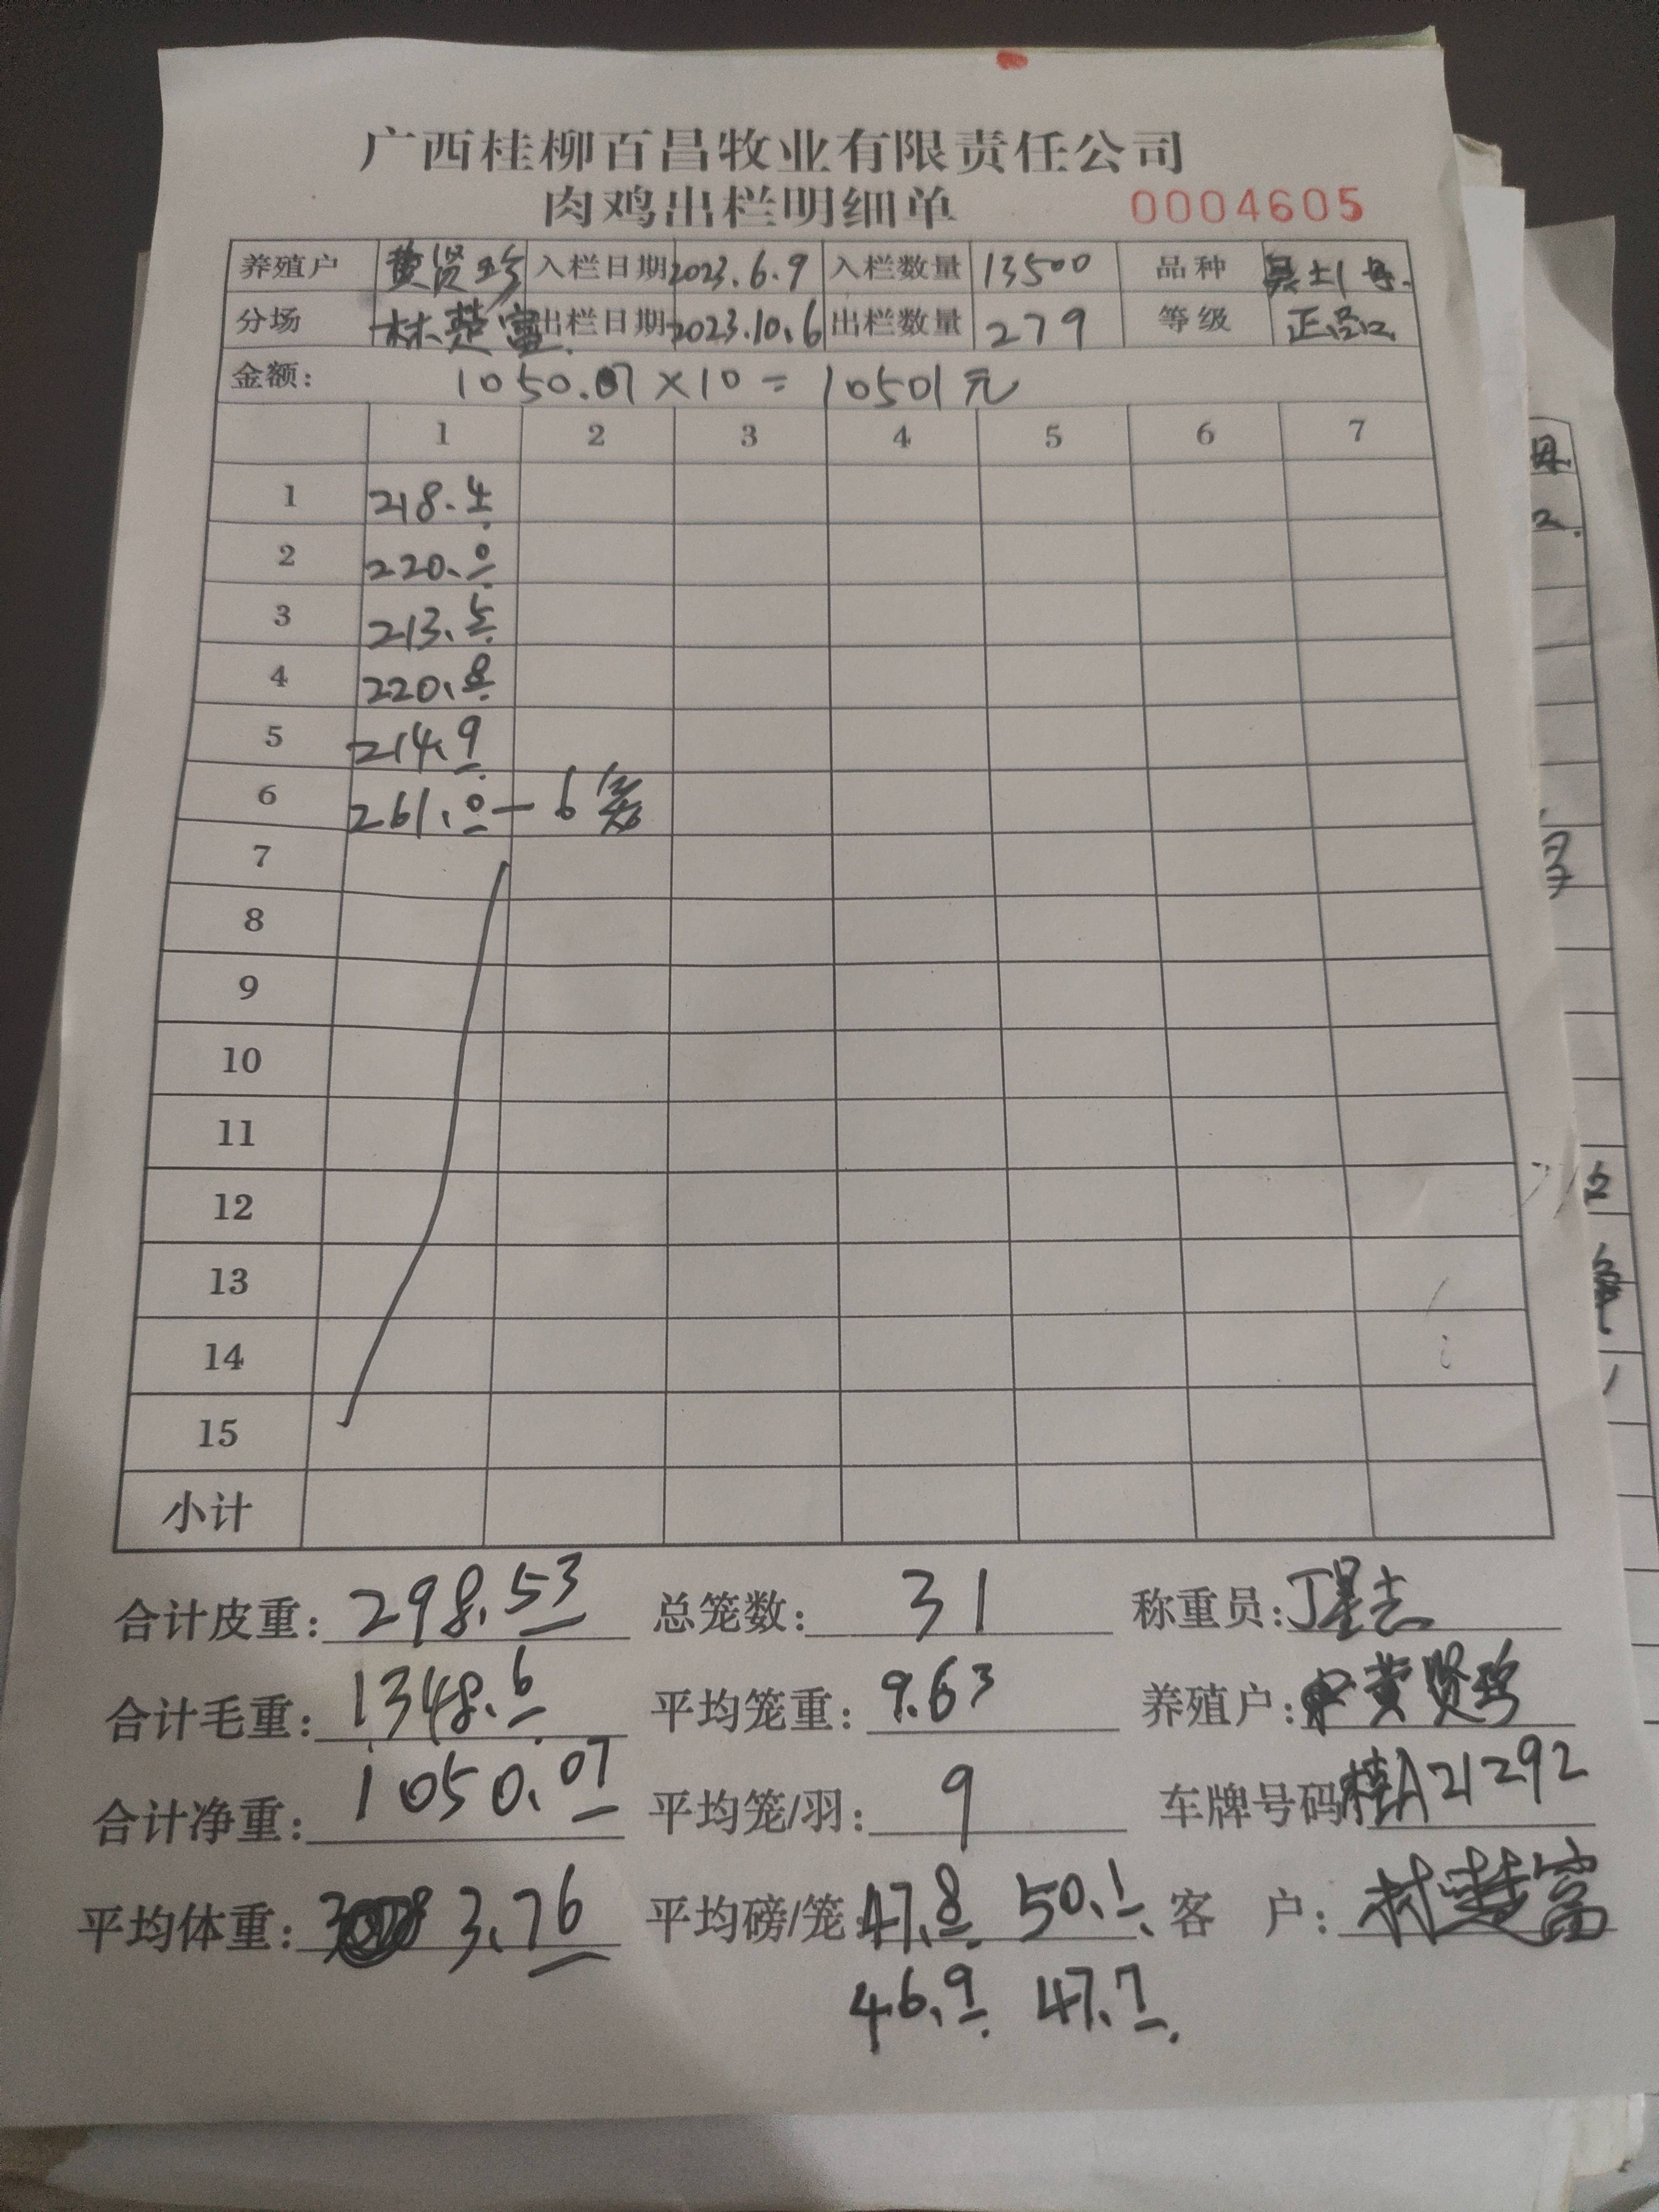 广西桂柳百昌牧业有限责任公司
肉鸡出栏明细单 0004605
养殖户 黄贤珍 入栏日期 2023.6.9 入栏数量 13500 品种
分场 林楚富 出栏日期 2023.10.6 出栏数量 279 等级 正品
金额: 1050.07×10=10501元
1 2 3 4 5 6 7
1 218.4
2 220.0
3 213.5
4 220.8
5 214.9
6 261.0-6笼
7
8
9
10
11
12
13
14
15
小计
合计皮重: 298.53 总笼数: 31 称重员: 丁星志
合计毛重: 1348.6 平均笼重: 9.63 养殖户: 黄贤珍
合计净重: 1050.07 平均笼/羽: 9 车牌号码 桂A21292
平均体重: 3.76 平均磅/笼 47.8 50.1 客 户: 林楚富
46.9 47.7